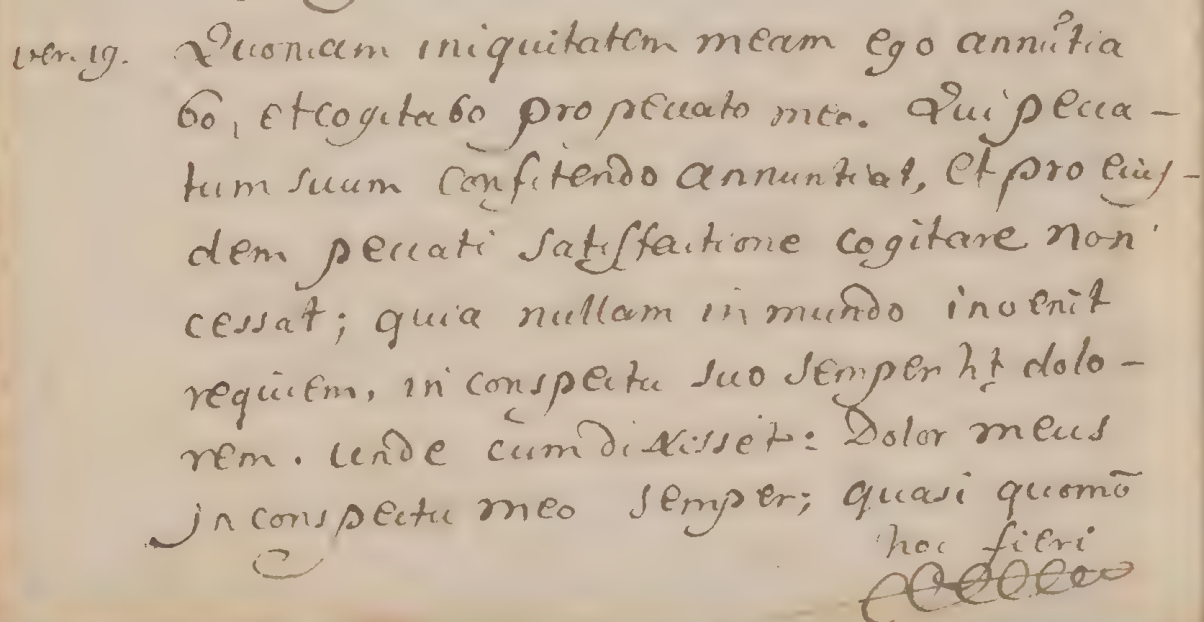 ver. 19. Quoniam iniquitatem meam ego annũtia
bo, et cogitabo pro peccato meo. Qui pecca-
tum suum confitendo annuntiat, et pro eius-
dem peccati satisfactione cogitare non
cessat; quia nullam in mundo invenit
requiem, in conspectu suo semper ht dolo-
rem. unde cum dixisset: Dolor meus
in conspectu meo semper; quasi quomõ
hoc fieri